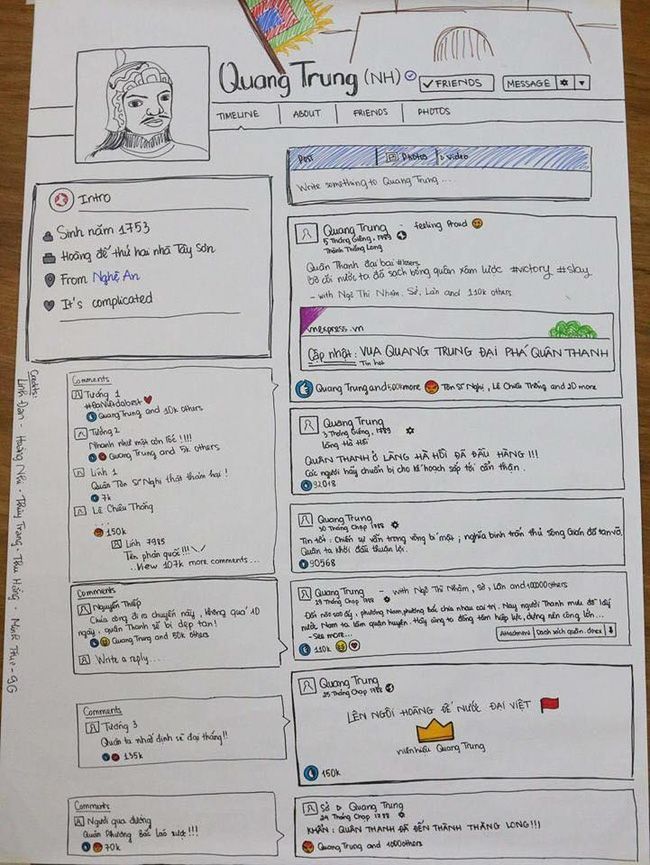 Quang Trung (NH)
✓ FRIENDS
MESSAGE
TIMELINE | ABOUT | FRIENDS | PHOTOS
Intro
Sinh năm 1753
Hoàng đế thứ hai nhà Tây Sơn
From Nghệ An
It's complicated
POST | PHOTOS | VIDEO
Write something to Quang Trung ...
Quang Trung - feeling proud
5 Tháng Giêng, 1789
Thành Thăng Long
Quân Thanh đại bại #losers
Bờ cõi nước ta đã sạch bóng quân xâm lược #victory #slay
- with Ngô Thì Nhậm, Sở, Lân and 110k others
vnexpress.vn
Cập nhật: VUA QUANG TRUNG ĐẠI PHÁ QUÂN THANH
Tin hot
Quang Trung and 500k more Tôn Sĩ Nghị, Lê Chiêu Thống and 20 more
Quang Trung
3 Tháng Giêng, 1789
Làng Hà Hồi
QUÂN THANH Ở LÀNG HÀ HỒI ĐÃ ĐẦU HÀNG!!!
Các ngươi hãy chuẩn bị cho kế hoạch sắp tới cẩn thận.
92018
Quang Trung
30 Tháng Chạp 1788
Tin tốt: Chiến sự vẫn trong vòng bí mật; nghĩa binh trấn thủ sông Gián đã tan vỡ.
Quân ta khởi đầu thuận lợi.
90568
Quang Trung - with Ngô Thì Nhậm, Sở, Lân and 100000 others
29 Tháng Chạp 1788
phương Nam, phương Bắc chia nhau cai trị. Nay người Thanh mưu đồ lấy
nước Nam ta làm quận huyện. Hãy cùng ta đồng tâm hiệp lực, dựng nên công lớn...
-See more...
Attachment Danh sách quân.docx
110k
Quang Trung
25 Tháng Chạp 1788
LÊN NGÔI HOÀNG ĐẾ NƯỚC ĐẠI VIỆT
niên hiệu Quang Trung
150k
Sở ▷ Quang Trung
24 Tháng Chạp 1788
KHẨN: QUÂN THANH ĐÃ ĐẾN THÀNH THĂNG LONG!!!
Quang Trung and 1000 others
Comments
Tướng 1
Quang Trung and 10k others
Tướng 2
Nhanh như một cơn lốc!!!!
Quang Trung and 5k others
Lính 1
Quân Tôn Sĩ Nghị thật thảm hại!
7k
Lê Chiêu Thống
150k
Lính 7985
Tên phản quốc!!!
... View 107k more comments...
Comments
Nguyễn Thiếp
Chúa công đi ra chuyến này, không quá 10
ngày, quân Thanh sẽ bị dẹp tan!
Quang Trung and 50k others
Write a reply...
Comments
Tướng 3
Quân ta nhất định sẽ đại thắng!!
195k
Comments
Người qua đường
Quân Phương Bắc láo xược!!!
70k
Credits:
Linh Đan - Hoàng Nhi - Thùy Trang - Thu Hương - Minh Thư - 9G